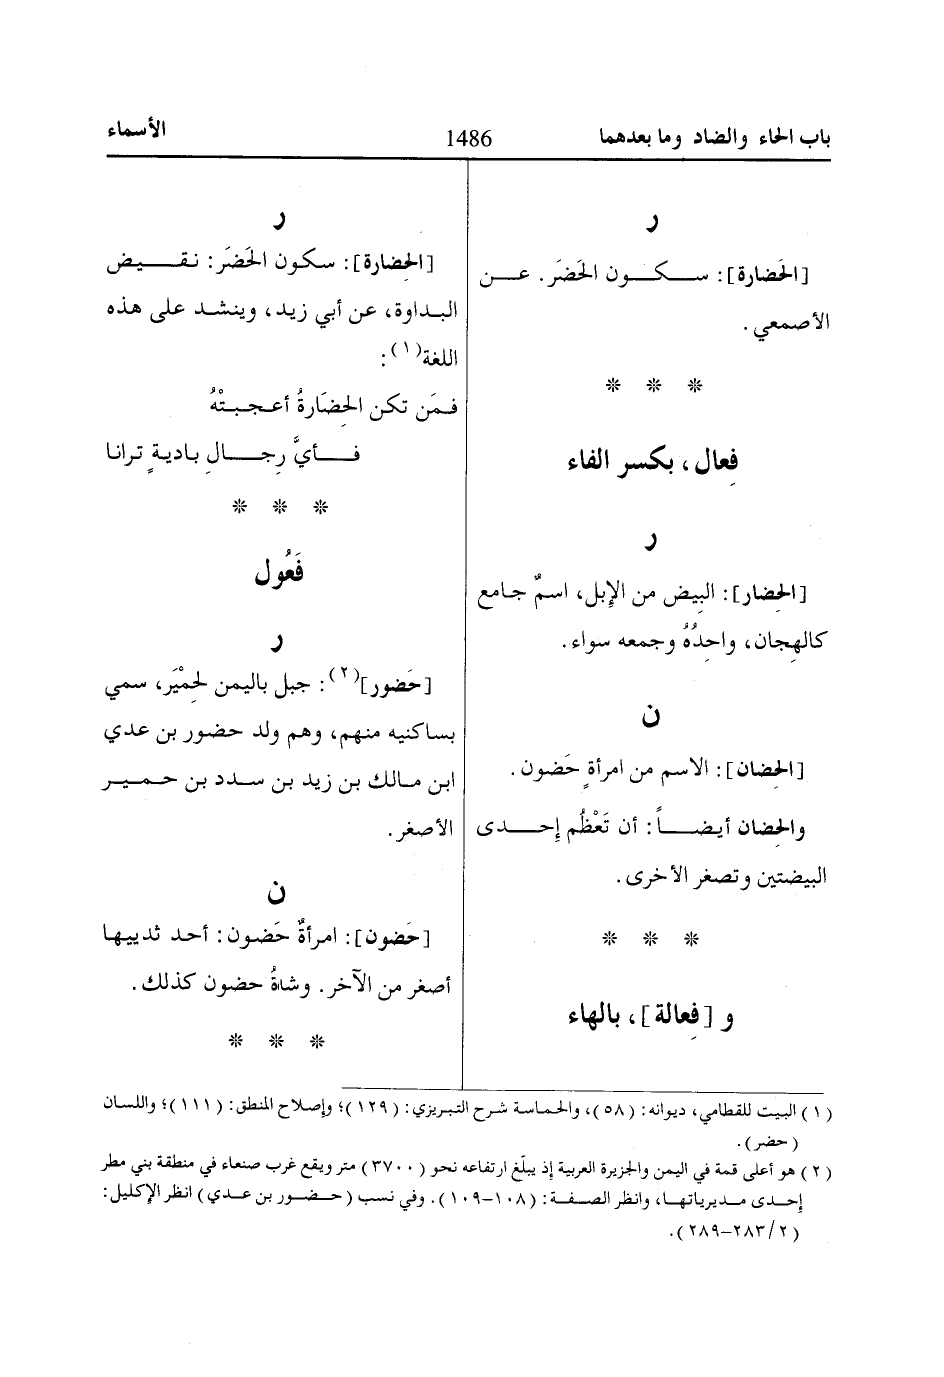 باب الحاء والضاد وما بعدهما
1486
الأسماء
ر
[الحَضارة]: سكون الحَضَر. عن
الأصمعي.
* * *
فِعال، بكسر الفاء
ر
[الحِضار]: البيض من الإبل، اسمٌ جامع
كالهِجان، واحِدُهُ وجمعه سواء.
ن
[الحِضان]: الاسم من امرأةٍ حَضون.
والحِضان أيضاً: أن تَعْظُم إحدى
البيضتين وتصغر الأخرى.
* * *
و [فِعالة]، بالهاء
ر
[الحِضارة]: سكون الحَضَر: نقيض
البداوة، عن أبي زيد، وينشد على هذه
اللغة(١):
فمَن تكن الحِضَارةُ أعجبتْهُ
فأيَّ رِجالِ باديةٍ ترانا
* * *
فَعُول
ر
[حَضور](٢): جبل باليمن لحِمْيَر، سمي
بساكنيه منهم، وهم ولد حضور بن عدي
ابن مالك بن زيد بن سدد بن حمير
الأصغر.
ن
[حَضون]: امرأةٌ حَضون: أحد ثدييها
أصغر من الآخر. وشاةُ حضون كذلك.
* * *
(١) البيت للقطامي، ديوانه: (٥٨)، والحماسة شرح التبريزي: (١٢٩)؛ وإصلاح المنطق: (١١١)؛ واللسان
(حضر).
(٢) هو أعلى قمة في اليمن والجزيرة العربية إذ يبلغ ارتفاعه نحو (٣٧٠٠) متر ويقع غرب صنعاء في منطقة بني مطر
إحدى مديرياتها، وانظر الصفة: (١٠٨-١٠٩). وفي نسب (حضور بن عدي) انظر الإكليل:
(٢/٢٨٣-٢٨٩).